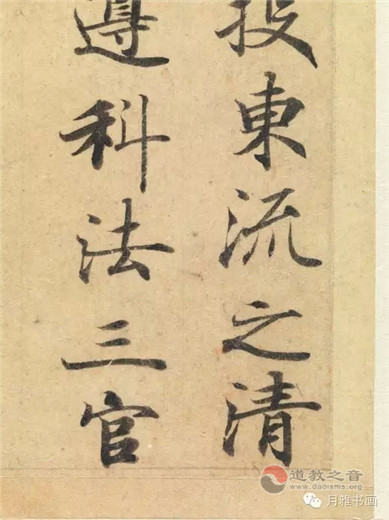 投東流之清
遵科法三官
道教之音
www.daoisms.org
月雅书画